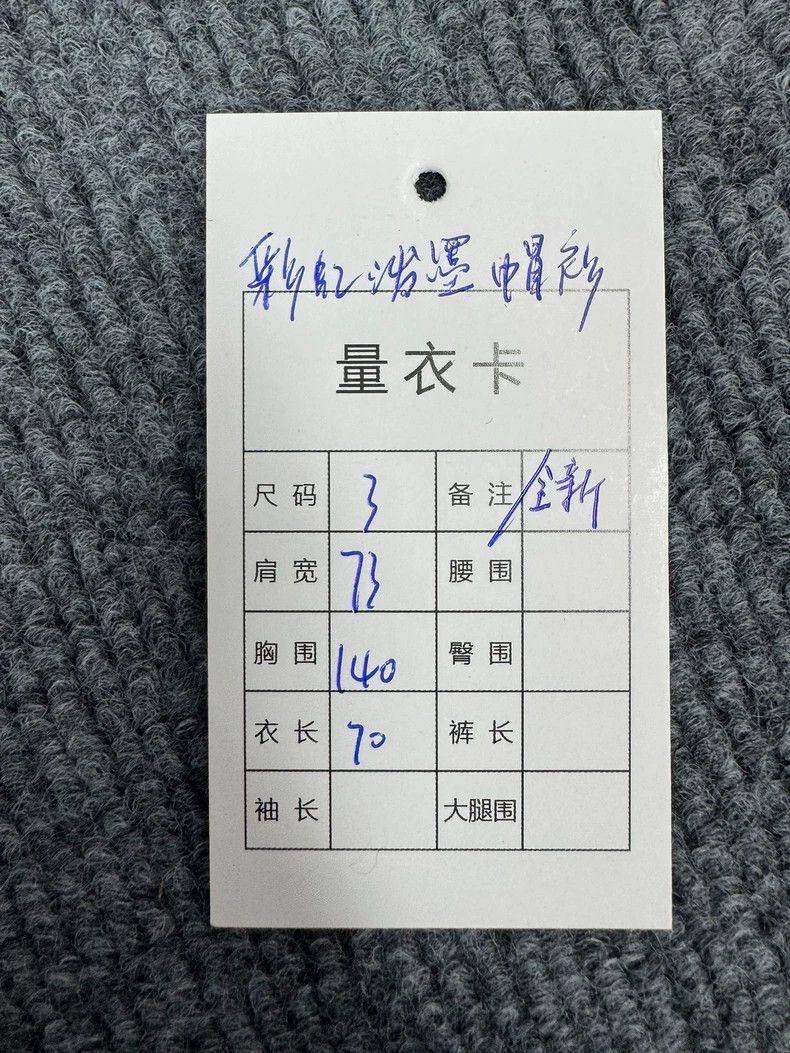 彩虹泼墨帽衫
量衣卡
尺码 3 备注 全新
肩宽 73 腰围
胸围 140 臀围
衣长 70 裤长
袖长 大腿围